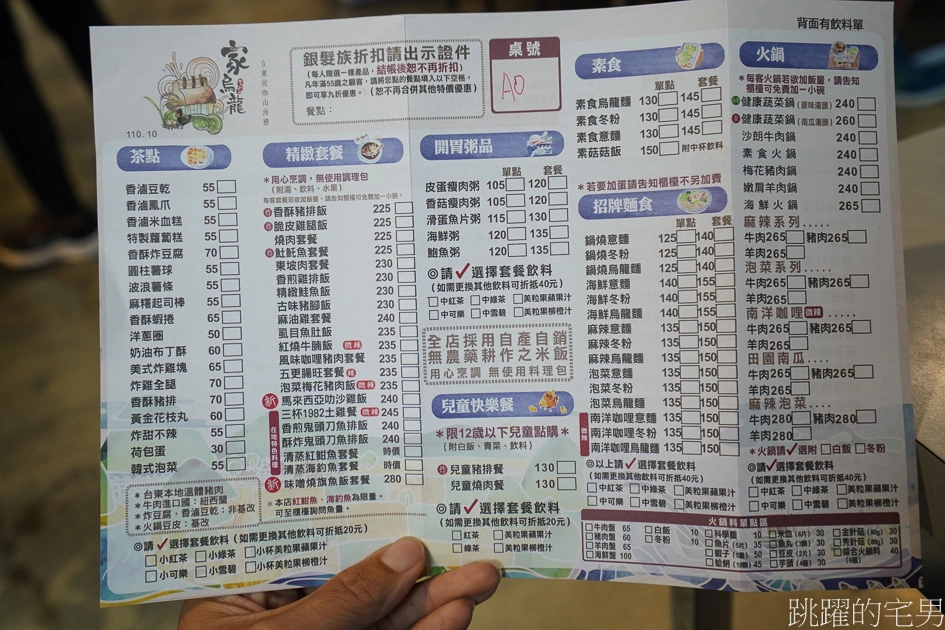 背面有飲料單
家烏龍
110. 10
銀髮族折扣請出示證件
(每人限選一樣產品，結帳後恕不再折扣)
凡年滿55歲之顧客，請將您點的餐點填入以下空格，
即可享九折優惠。(恕不再合併其他特價優惠)
餐點：
桌號
A0
茶點
香滷豆乾 55
香滷鳳爪 55
香滷米血糕 55
特製蘿蔔糕 55
香酥炸豆腐 70
圓柱薯球 55
波浪薯條 55
麻糬起司棒 55
香酥蝦捲 65
洋蔥圈 50
奶油布丁酥 60
美式炸雞塊 65
炸雞全腿 70
香酥豬排 70
黃金花枝丸 60
炸甜不辣 55
荷包蛋 30
韓式泡菜 55
＊台東本地溫體豬肉
＊牛肉進口國：紐西蘭
＊炸豆腐，香滷豆乾：非基改
＊火鍋豆皮：基改
精緻套餐
＊用心烹調，無使用調理包
(附湯、飲料、水果)
每客套餐若欲加飯量，請告知櫃檯可免費加一小碗。
香酥豬排飯 225
脆皮雞腿飯 225
燒肉套餐 225
𩵚魠魚套餐 225
東坡肉套餐 230
香煎雞排飯 230
精緻鮭魚飯 230
古味豬腳飯 230
麻油雞套餐 240
虱目魚肚飯 235
紅燒牛腩飯 微辣 235
風味咖哩豬肉套餐 235
五更腸旺套餐 辣 235
泡菜梅花豬肉飯 微辣 235
新 馬來西亞叻沙雞飯 240
三杯1982土雞餐 微辣 245
在地特色料理
香煎鬼頭刀魚排飯 240
酥炸鬼頭刀魚排飯 240
清蒸紅魽魚套餐 時價
清蒸海釣魚套餐 時價
新 味噌燒旗魚飯套餐 280
＊本店紅魽魚、海釣魚為限量。
可至櫃檯詢問魚量。
◎請✓選擇套餐飲料(如需更換其他飲料可折抵20元)
小紅茶 小綠茶 小杯美粒果蘋果汁
小可樂 小雪碧 小杯美粒果柳橙汁
開胃粥品
單點 套餐
皮蛋瘦肉粥 105 120
香菇瘦肉粥 105 120
滑蛋魚片粥 115 130
海鮮粥 120 135
鮑魚粥 120 135
◎請✓選擇套餐飲料
(如需更換其他飲料可折抵40元)
中紅茶 中綠茶 美粒果蘋果汁
中可樂 中雪碧 美粒果柳橙汁
全店採用自產自銷
無農藥耕作之米飯
用心烹調 無使用料理包
兒童快樂餐
＊限12歲以下兒童點購＊
(附白飯、青菜、飲料)
兒童豬排餐 130
兒童燒肉餐 130
◎請✓選擇套餐飲料
(如需更換其他飲料可折抵20元)
紅茶 美粒果蘋果汁
綠茶 美粒果柳橙汁
素食
單點 套餐
素食烏龍麵 130 145
素食冬粉 130 145
素食意麵 130 145
素菇菇飯 150 附中杯飲料
＊若要加蛋請告知櫃檯不另加費
招牌麵食
單點 套餐
鍋燒意麵 125 140
鍋燒冬粉 125 140
鍋燒烏龍麵 125 140
海鮮意麵 140 155
海鮮冬粉 140 155
海鮮烏龍麵 140 155
麻辣意麵 135 150
麻辣冬粉 135 150
麻辣烏龍麵 135 150
泡菜意麵 135 150
泡菜冬粉 135 150
泡菜烏龍麵 135 150
微辣
南洋咖哩意麵 135 150
南洋咖哩冬粉 135 150
南洋咖哩烏龍麵 135 150
◎以上請✓選擇套餐飲料
(如需更換其他飲料可折抵40元)
中紅茶 中綠茶 美粒果蘋果汁
中可樂 中雪碧 美粒果柳橙汁
火鍋
＊每客火鍋若欲加飯量，請告知
櫃檯可免費加一小碗
健康蔬菜鍋(原味湯頭) 240
健康蔬菜鍋(南瓜湯頭) 260
沙朗牛肉鍋 240
素食火鍋 240
梅花豬肉鍋 240
嫩肩羊肉鍋 240
海鮮火鍋 265
麻辣系列......
牛肉265 豬肉265
羊肉265
泡菜系列.....
牛肉265 豬肉265
羊肉265
南洋咖哩 微辣 .....
牛肉265 豬肉265
羊肉265
田園南瓜....
牛肉265 豬肉265
羊肉265
麻辣泡菜....
牛肉280 豬肉280
羊肉280
＊火鍋請✓選附 白飯 冬粉
◎請✓選擇套餐飲料
(如需更換其他飲料可折抵40元)
中紅茶 中綠茶 美粒果蘋果汁
中可樂 中雪碧 美粒果柳橙汁
火鍋料單點區
牛肉盤 65 白飯 10 科學麵 10 米血(6片) 30 金針菇(80g) 30
豬肉盤 60 冬粉 10 魚片(5片) 35 魚丸(3顆) 30 秀針菇(80g) 30
羊肉盤 65 蝦子(6顆) 50 豆皮(2片) 30 綜合火鍋料 40
海鮮盤 100 蛤蜊(10顆) 45 芋頭(4顆) 30 (6種)
跳躍的宅男